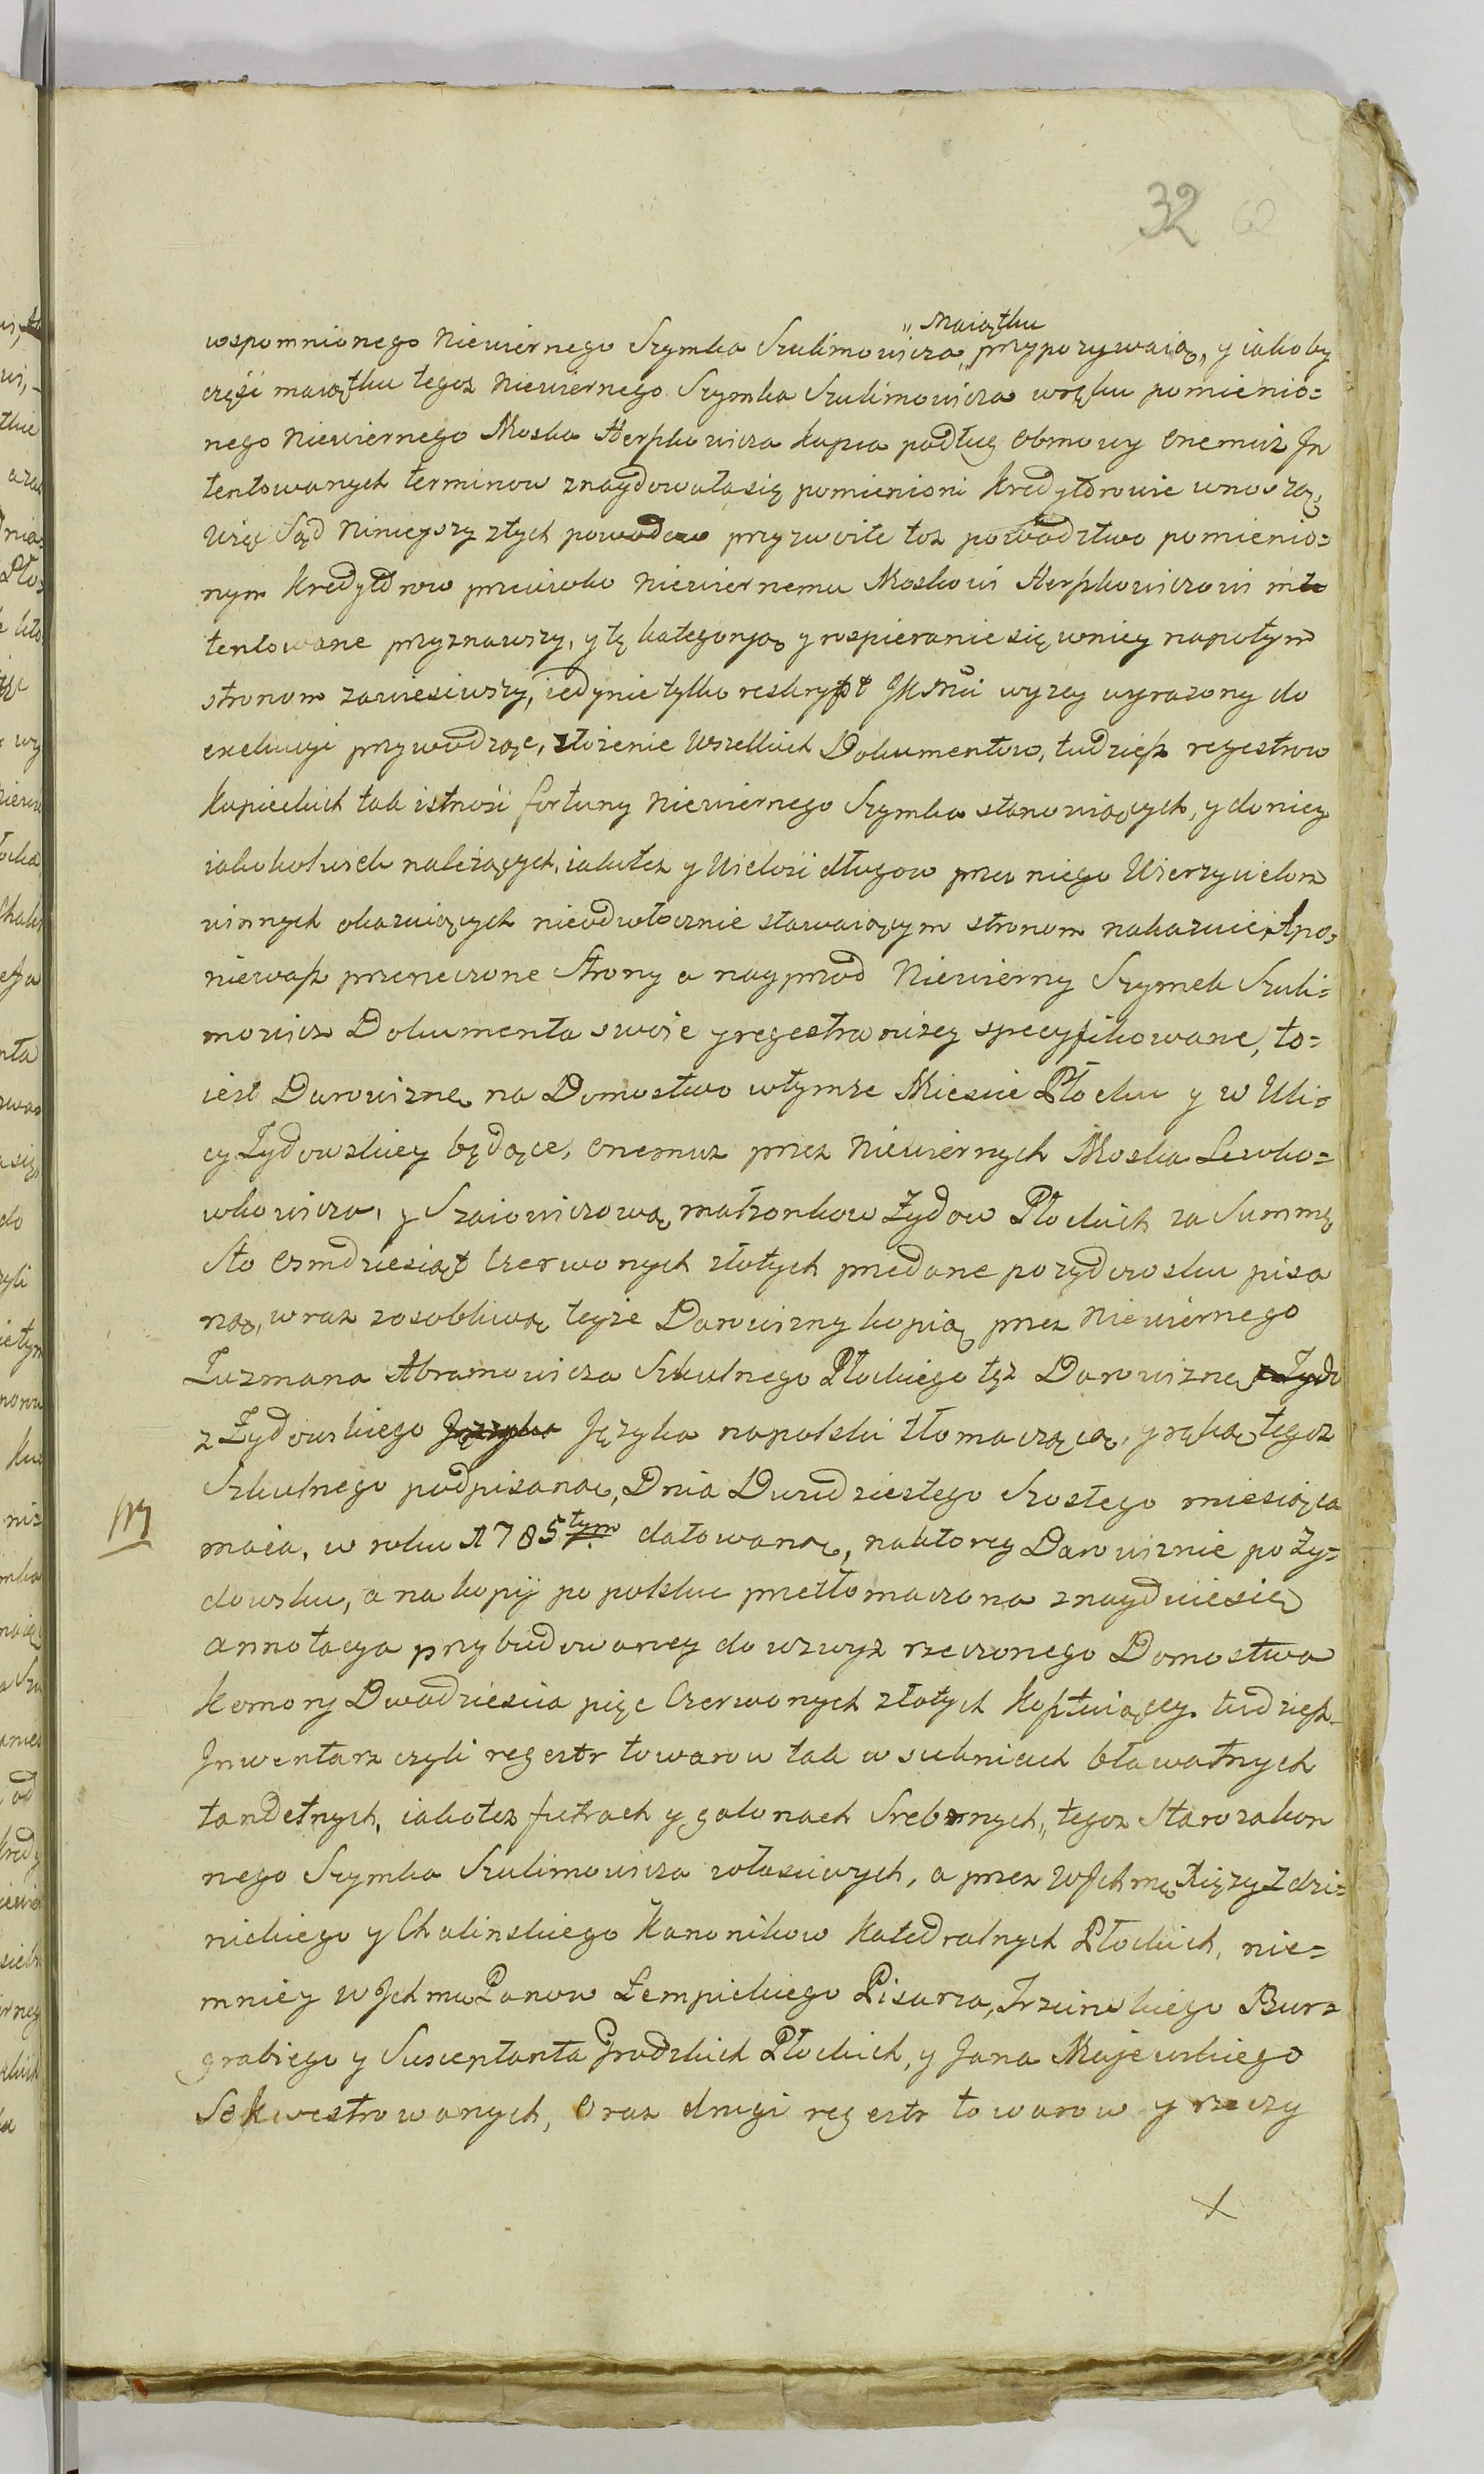 32 62
„Maiątku
wspomnionego Niewiernego Szymka Szulimowicza „przypozywaią, y iakoby
częśi maiątku tegoż Niewiernego Szymka Szulimowicza wręku pomienio=
nego Niewiernego Moska Herszkowicza kupca podług Obmowy Onemuż In
tentowanych terminow znaydowałasię pomienioni Kredytorowie wnoszą,
Więc Sąd Ninieyszy ztych powodow przyzwoite toż powodztwo pomienio=
nym Kredytorow przeciwko Niewiernemu Moskowi Herszkowiczowi in
tentowane przyznawszy, y tę kategoryą y rospieranie się wniey napotym
stronom zawiesiwszy, iedynie tylko reskrypt JKMci wyzey wyrazony do
exekucyi przywodząc, złożenie Wszelkich Dokumentow, tudzież regestrow
Kupieckich tak istnośi fortuny Niewiernego Szymka stanowiących, y doniey
iakokolwiek należących, iakoteż y Wielośi długow przez niego Wierzycielom
winnych okazuiących nieodwłocznie stawaiącym stronom nakazuie, A po=
nieważ przerzeczone Strony a nayprzod Niewierny Szymek Szuli=
mowicz Dokumenta swoie y regestra niżey specyfikowane, to=
iest Darowiznę na Domostwo wtymże Mieście Płocku y w Uli=
cy Zydowskiey będące, Onemuż przez Niewiernych Moska Lewko=
wkowicza, y Szaiowiczową małżonkow Żydow Płockich za Summę
Sto Osmdziesiąt Czerwonych złotych przedane pozydowsku pisa
ną, wraz zosobliwą teyże Darowizny kopią przez Niewiernego
Luzmana Abramowicza Szkulnego Płockiego tęż Darowiznę z Zydo
z Żydowskiego Języka Języka napolski tłomaczącą, y ręką tegoż
Szkulnego podpisaną, Dnia Dwudziestego Szostego miesiąca
maia, w roku 1785tym datowaną, naktorey Darowiznie po Ży=
dowsku, a na kopij po polsku przetłomaczona znayduiesię
annotacya przybudowaney do wzwyż rzeczonego Domostwa
Komory Dwadziescia pięc Czerwonych złotych kosztuiącey. tudziesz
Inwentarz czyli regestr towarow tak w sukniach bławatnych
tandetnych, iakoteż futrach y galonach Srebrnych, tegoż Starozakon
nego Szymka Szulimowicza własciwych, a przez WJchmę Xięzy Zdzi=
nickiego y Chalinskiego Kanonikow Katedralnych Płockich, nie=
mniey WJchmę Panow Łempickiego Pisarza, Trzcinskiego Bur=
grabiego y Suscepta&#8203;nta Grodzkich Płockich, y Jana Majewskiego
Sekwestrowanych, Oraz drugi regestr towarow y rzeczy